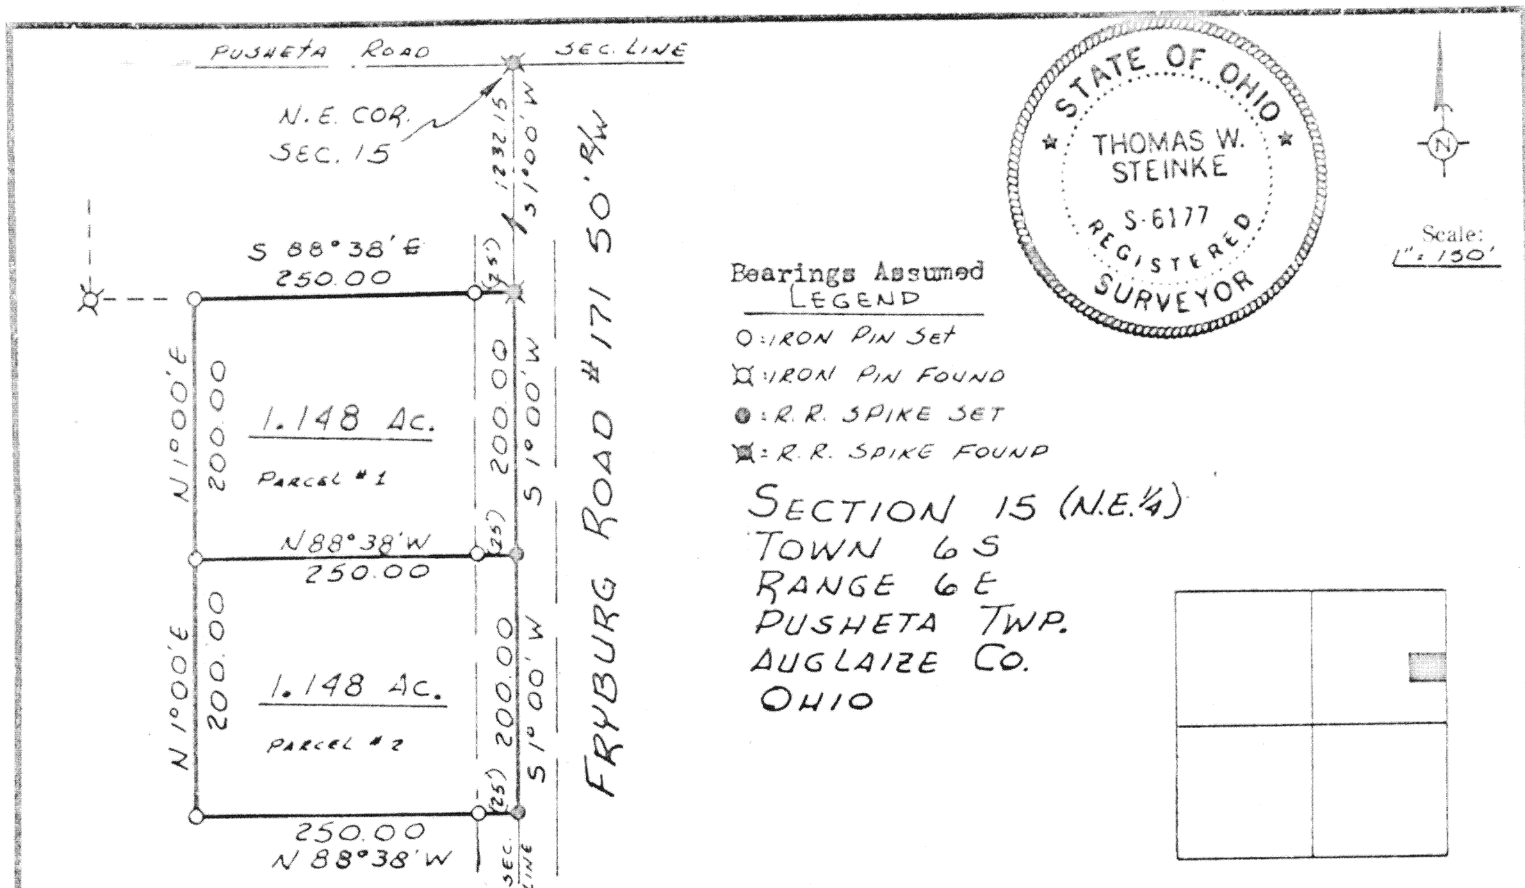 PUSHETA ROAD
SEC. LINE
N.E. COR.
SEC. 15
1232.15
S 1°00' W
S 88°38' E
250.00
(25')
N 1°00' E
200.00
1.148 AC.
PARCEL #1
200.00
S 1°00' W
(25')
N 88°38' W
250.00
N 1°00' E
200.00
1.148 AC.
PARCEL #2
200.00
S 1°00' W
(25')
250.00
N 88°38' W
SEC.
LINE
FRYBURG ROAD #171 50' R/W
STATE OF OHIO
THOMAS W.
STEINKE
S-6177
REGISTERED
SURVEYOR
N
Scale:
1"=150'
Bearings Assumed
LEGEND
O:IRON PIN SET
:IRON PIN FOUND
: R.R. SPIKE SET
: R.R. SPIKE FOUND
SECTION 15 (N.E.¼)
TOWN 6 S
RANGE 6 E
PUSHETA TWP.
AUGLAIZE CO.
OHIO